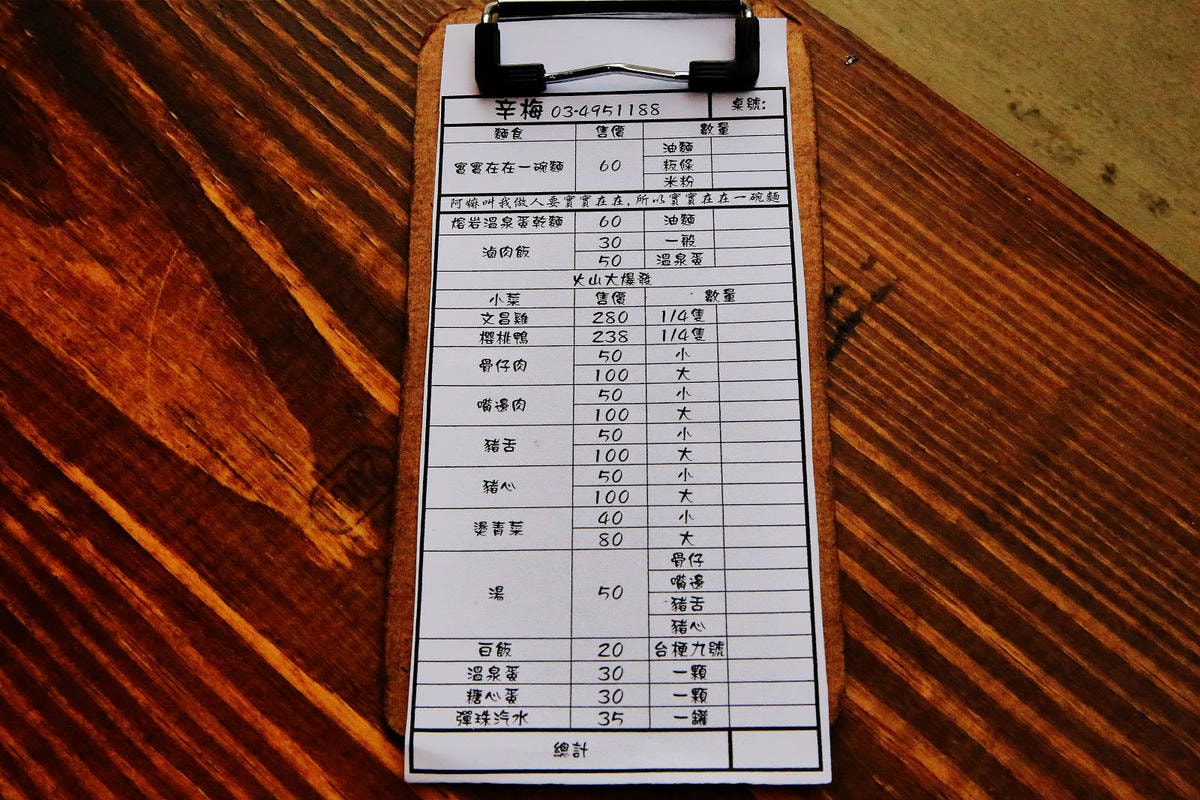 辛梅 03-4951188 桌號:
麵食 售價 數量
實實在在一碗麵 60 油麵
粄條
米粉
阿嫲叫我做人要實實在在,所以實實在在一碗麵
熔岩溫泉蛋乾麵 60 油麵
滷肉飯 30 一般
50 溫泉蛋
火山大爆發
小菜 售價 數量
文昌雞 280 1/4隻
櫻桃鴨 238 1/4隻
骨仔肉 50 小
100 大
嘴邊肉 50 小
100 大
豬舌 50 小
100 大
豬心 50 小
100 大
燙青菜 40 小
80 大
湯 50 骨仔
嘴邊
豬舌
豬心
百飯 20 台梗九號
溫泉蛋 30 一顆
糖心蛋 30 一顆
彈珠汽水 35 一罐
總計